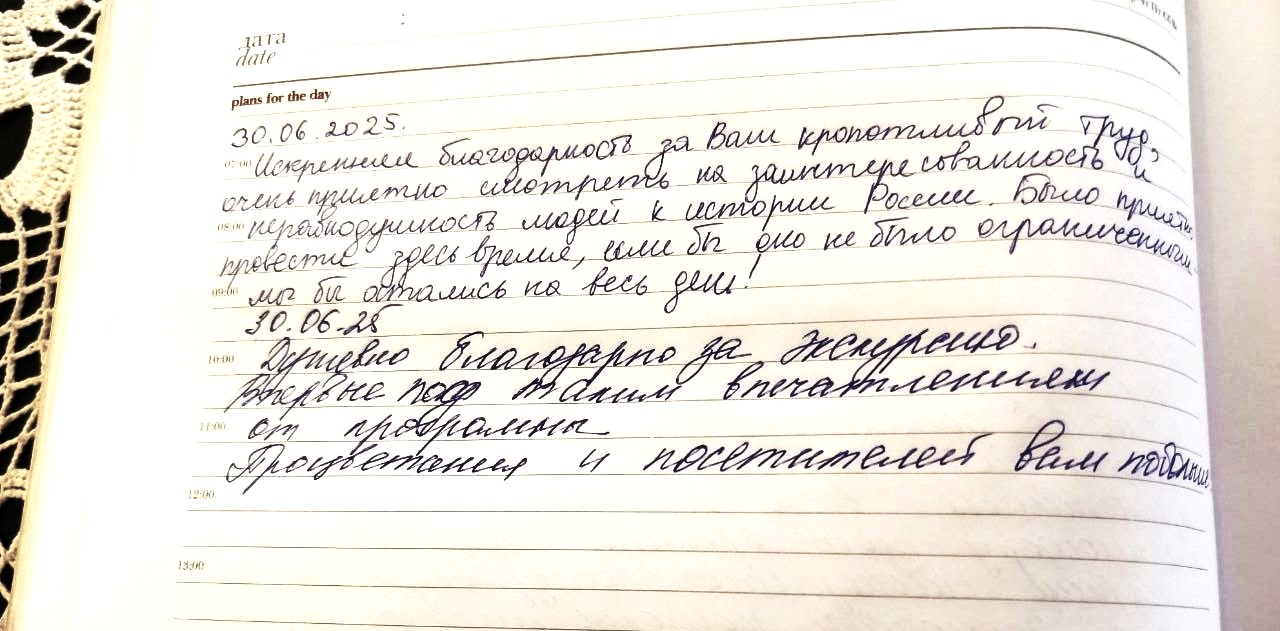 дата
date
plans for the day
30.06.2025.
07:00 Искренняя благодарность за Ваш кропотливый труд,
очень приятно смотреть на заинтересованность и
08:00 неравнодушность людей к истории России. Было приятно
провести здесь время, если бы оно не было ограниченной
09:00 мы бы остались на весь день!
30.06.25
10:00 Душевно благодарно за экскурсию.
Впервые под таким впечатлениями
11:00 от программы
Процветания и посетителей вам побольше
12:00
13:00